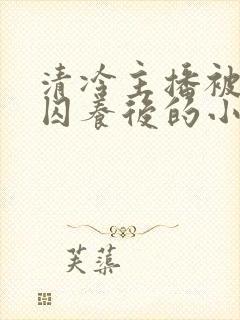 清冷主播被
囚养后的小
芙蕖